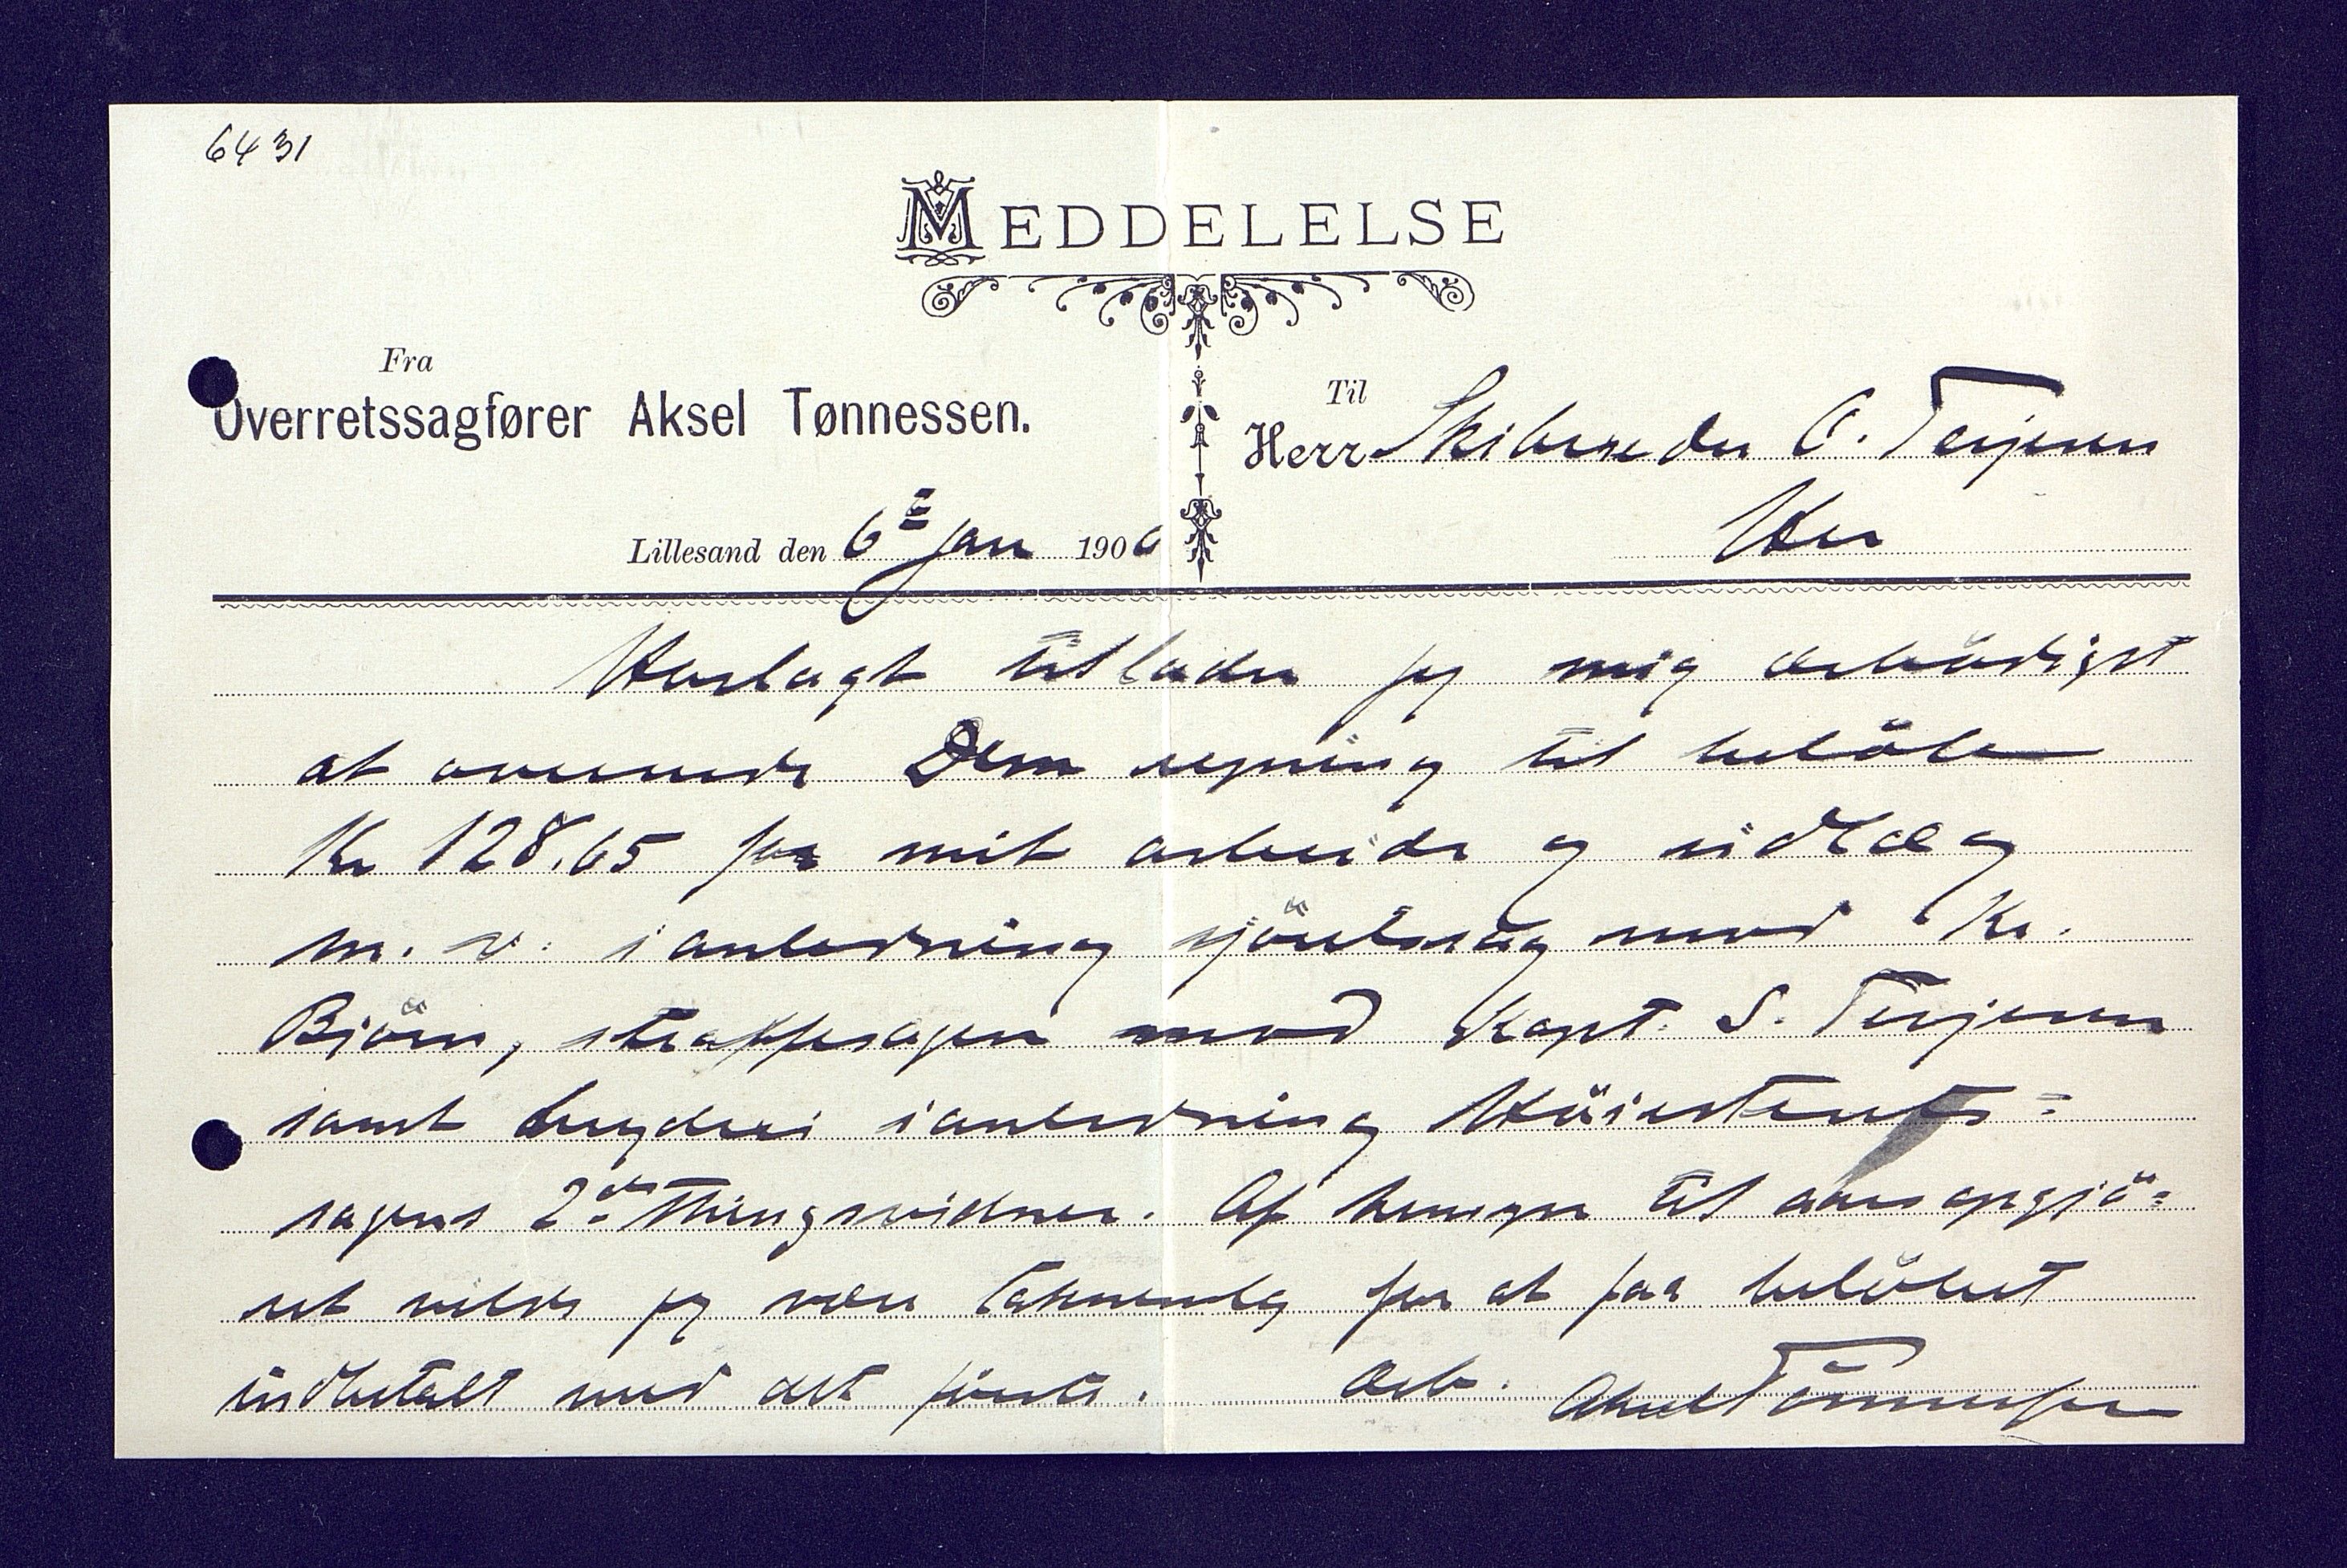 6431
MEDDELELSE
Fra
Overretssagfører Aksel Tønnessen.
Til
Herr Skibsreder O. Terjesen
Her
Lillesand den 6te Jan 1906
Herlagt tillader jeg mig ærbödigst
at oversende Dem regning til belöb
Kr 128.65 for mit arbeide og udlæg
m. v. i anledning sjöretssag mod Kr.
Björn, straffesagen mod Kapt. S. Terjesen
samt bryderi i anledning Höiesterets-
sagens 2de Thingsvidner. Af hensyn til aarsopgjö-
ret vilde jeg være taknemlig for at faa belöbet
indbetalt med det förste. Ærb. Aksel Tönnessen